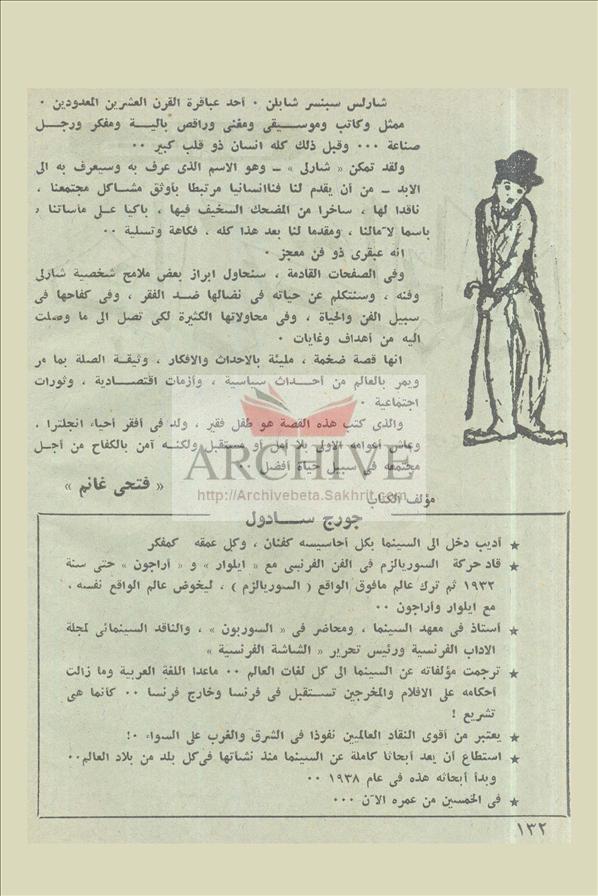 شارلس سبنسر شابلن ٠ أحد عباقرة القرن العشرين المعدودين ٠
ممثل وكاتب وموسيقى ومغنى وراقص باليه ومفكر ورجل
صناعة ٠٠٠ وقبل ذلك كله انسان ذو قلب كبير ٠٠
ولقد تمكن « شارلى » ــ وهو الاسم الذى عرف به وسيعرف به الى
الابد ــ من أن يقدم لنا فناانسانيا مرتبطا بأوثق مشاكل مجتمعنا ،
ناقدا لها ، ساخرا من المضحك السخيف فيها ، باكيا على مأساتنا ،
باسما لآمالنا ، ومقدما لنا بعد هذا كله ، فكاهة وتسلية ٠٠
انه عبقرى ذو فن معجز ٠
وفى الصفحات القادمة ، سنحاول ابراز بعض ملامح شخصية شارلى
وفنه ، وسنتكلم عن حياته فى نضالها ضد الفقر ، وفى كفاحها فى
سبيل الفن والحياة ، وفى محاولاتها الكثيرة لكى تصل الى ما وصلت
اليه من أهداف وغايات ٠
انها قصة ضخمة ، مليئة بالاحداث والافكار ، وثيقة الصلة بما مر
ويمر بالعالم من أحداث سياسية ، وأزمات اقتصادية ، وثورات
اجتماعية ٠
والذى كتب هذه القصة هو طفل فقير ، ولد فى أفقر أحياء انجلترا ،
وعاش أعوامه الاولى بلا أمل أو مستقبل ولكنه آمن بالكفاح من أجل
مجتمعه فى سبيل حياة أفضل ٠٠
« فتحى غانم »
ARCHIVE
http://Archivebeta.Sakhrit.com
مؤلف الكتاب
جورج سادول
★ أديب دخل الى السينما بكل أحاسيسه كفنان ، وكل عمقه كمفكر
★ قاد حركة السوريالزم فى الفن الفرنسى مع « ايلوار » و « أراجون » حتى سنة
١٩٣٢ ثم ترك عالم مافوق الواقع ( السوريالزم ) ، ليخوض عالم الواقع نفسه ،
مع ايلوار وأراجون ٠٠
★ أستاذ فى معهد السينما ، ومحاضر فى « السوربون » ، والناقد السينمائى لمجلة
الاداب الفرنسية ورئيس تحرير « الشاشة الفرنسية »
★ ترجمت مؤلفاته عن السينما الى كل لغات العالم ٠٠ ماعدا اللغة العربية وما زالت
أحكامه على الافلام والمخرجين تستقبل فى فرنسا وخارج فرنسا ٠٠ كأنما هى
تشريع !
★ يعتبر من أقوى النقاد العالميين نفوذا فى الشرق والغرب على السواء ٠!
★ استطاع أن يعد أبحاثا كاملة عن السينما منذ نشأتها فى كل بلد من بلاد العالم٠٠
وبدأ أبحاثه هذه فى عام ١٩٣٨ ٠٠
★ فى الخمسين من عمره الآن ٠٠٠
١٣٢